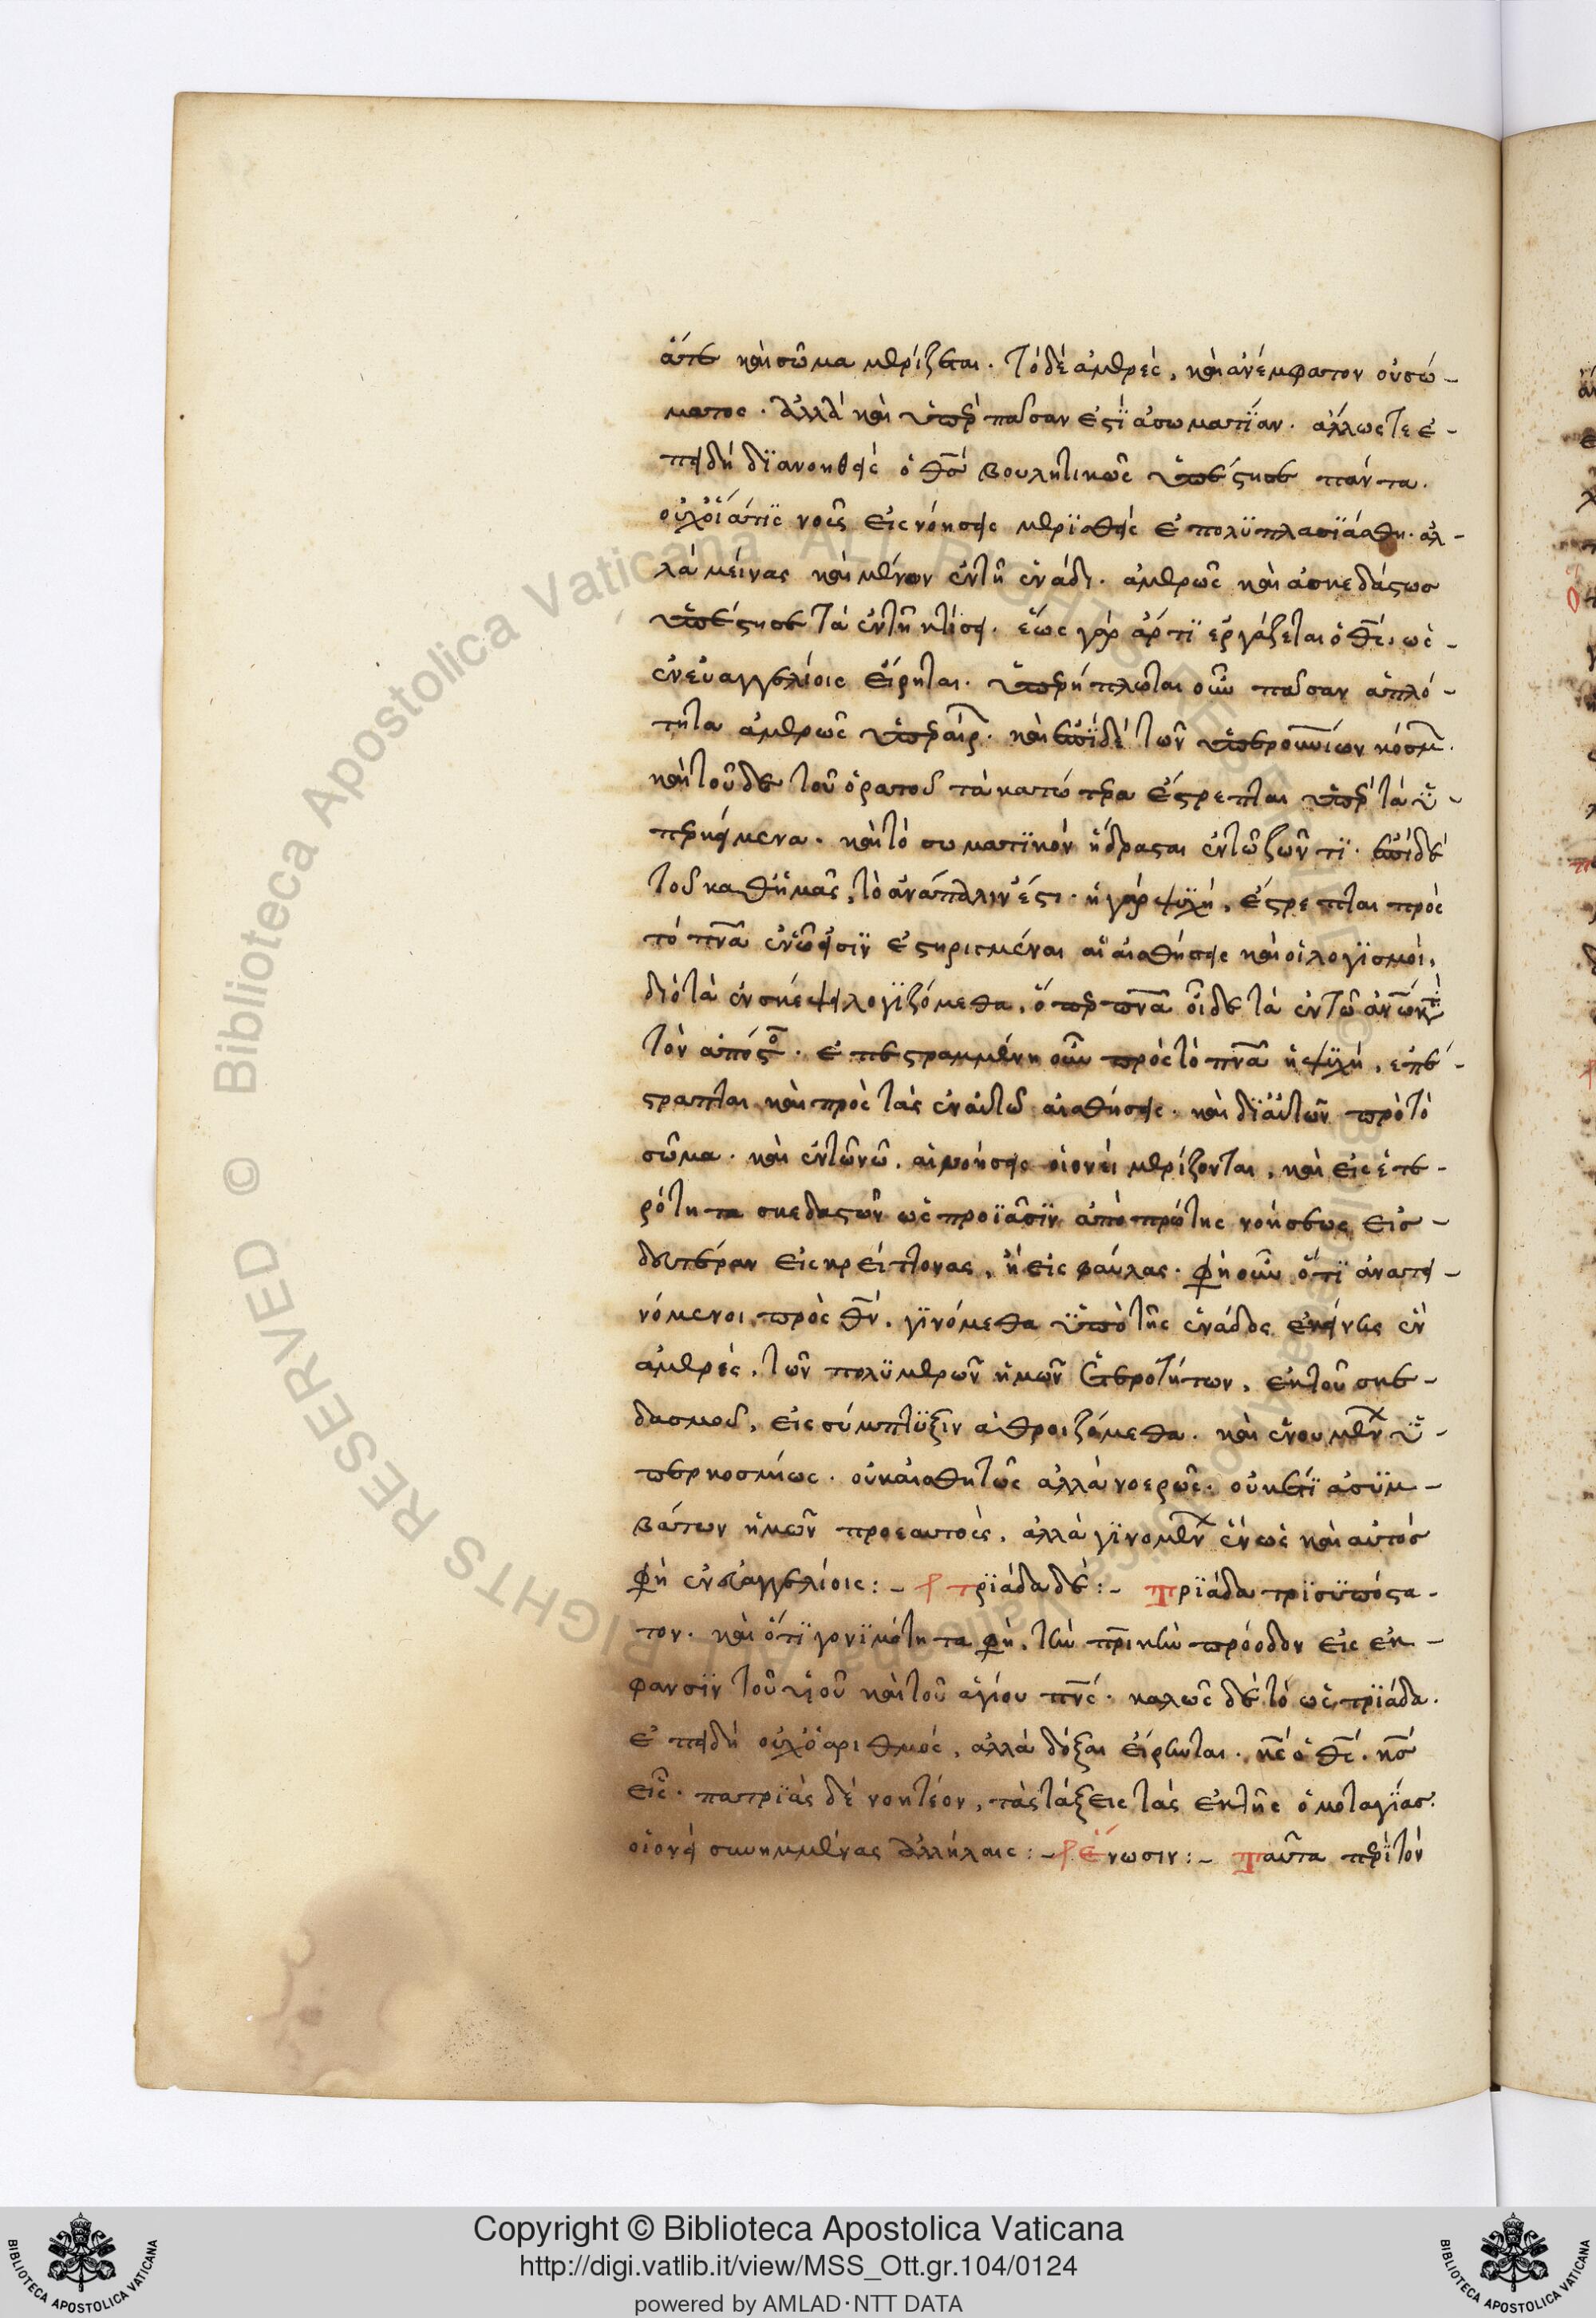 ἅτε καὶ σῶμα μερίζεται. τὸ δὲ ἀμερὲς, καὶ ἀνέμφατον οὐ σώ-
ματος. ἀλλὰ καὶ ὑπὲρ πᾶσαν ἐστὶ ἀσωματΐαν. ἄλλως τε ἐ-
πειδὴ διανοηθεὶς ὁ θς̅ βουλητικῶς ὑπέστησε πάντα.
οὐχ οἷά τις νοῦς εἰς νοήσεις μερϊσθεὶς ἐπολϋπλασϊάσθη. ἀλ-
λὰ μείνας καὶ μένων ἐν τῆ ἑνάδι. ἀμερῶς καὶ ἀσκεδάστως
ὑπέστησε τὰ ἐν τῆ κτίσει. ἕως γὰρ ἄρτϊ ἐργάζεται ὁ θς̅, ὡς
ἐν εὐαγγελίοις εἴρηται. ὑπερήπλωται οὖν πᾶσαν ἁπλό-
τητα ἀμερῶς ὑπεραίρ. καὶ ἐπϊ δὲ τῶν ὑπερουνίων κόσμ.
καὶ τοῦδε τοῦ ὁρατοῦ τὰ κατώτερα ἔστρεπται ὑπὲρ τὰ ὑ-
περκείμενα. καὶ τὸ σωματϊκὸν ἥδρασται ἐν τῶ ζῶντϊ. ἐπὶ δὲ
τοῦ καθ' ἡμᾶς, τὸ ἀνάπαλιν ἐστι. ἡ γὰρ ψϋχὴ, ἔστρεπται πρὸς
τὸ πνα̅ ἐν ᾧ εἰσϊν ἐστηρισμέναι αἱ αἰσθήσεις καὶ οἱ λογϊσμοὶ,
διὸ τὰ ἐν σκέψει λογϊζόμεθα, ὅπερ πνα̅ οἶδε τὰ ἐν τῶ ἀνω̅ κτ̅
τὸν ἀπόστο. ἐπεστραμμένη οὖν πρὸς τὸ πνα̅ ἡ ψϋχὴ, ἐπέ-
στραπται καὶ πρὸς τὰς ἐν αὐτῶ αἰσθήσεις. καὶ δι' αὐτῶν πρὸ τὸ
σῶμα. καὶ ἐν τῶ νῶ. αἱ νοήσεις οἱονεὶ μερίζονται, καὶ εἰς ἑτε-
ρότητα σκεδαστῶν ὡς προϊᾶσϊν ἀπὸ πρώτης νοήσεως εἰς
δευτέραν εἰς κρείττονας, ἢ εἰς φαύλας. φὴ οὖν ὅτϊ ἀνατει-
νόμενοι πρὸς θν̅. γϊνόμεθα ὑπὸ τῆς ἑνάδος ἐκείνης ἓν
ἀμερὲς, τῶν πολϋμερῶν ἡμῶν ἑτεροτήτων, ἐκ τοῦ σκε-
δασμοῦ, εἰς σύμπτϋξιν ἀθροιζόμεθα. καὶ ἑνουμεν̅ ὑ-
περκοσμίως. οὐκ αἰσθητῶς ἀλλὰ νοερῶς. οὐκέτϊ ἀσϋμ-
βάτων ἡμῶν προς εαυτοὺς, ἀλλὰ γϊνομεν̅ ἓν ὡς καὶ αὐτὸς
φὴ ἐν εὐαγγελίοις :- τρϊάδα δὲ :- Τρϊάδα τρϊσϋπόστα-
τον. καὶ ὅτϊ γονϊμότητα φὴ, τὴν πρικὴν πρόοδον εἰς ἔκ-
φανσϊν τοῦ υἱοῦ καὶ τοῦ ἁγίου πνς̅. καλῶς δὲ τὸ ὡς τρϊάδα.
ἐπειδὴ οὐχ ὁ ἀριθμὸς, ἀλλὰ δόξαι εἴρηνται. κς̅ ὁ θς̅. κς̅
εἷς. πατρϊὰς δὲ νοητέον, τὰς τάξεις τὰς ἐκ τῆς ὁμοταγΐας.
οἱονεὶ συνημμένας ἀλλήλαις :- ἕνωσιν :- Ταῦτα περὶ τὸν
Copyright © Biblioteca Apostolica Vaticana
http://digi.vatlib.it/view/MSS_Ott.gr.104/0124
powered by AMLAD·NTT DATA